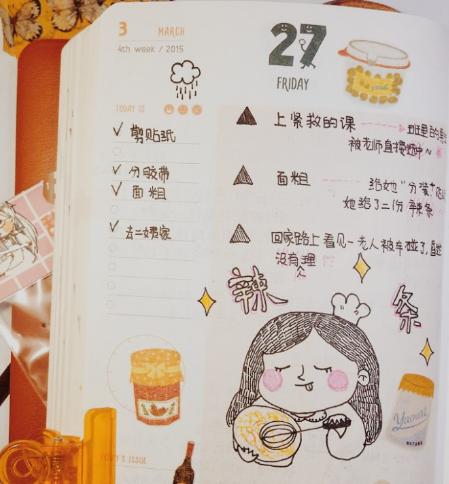 3 MARCH
4th week / 2015
27
FRIDAY
TODAY IS
✓ 剪贴纸
✓ 分胶带
✓ 面粗
✓ 去二舅家
▲ 上紧救的课
被老师直接
▲ 面粗 给她"分装"
她给了二份 辣条
▲ 回家路上看见一老人被车碰了
没有人理
辣条
'S ISSUE